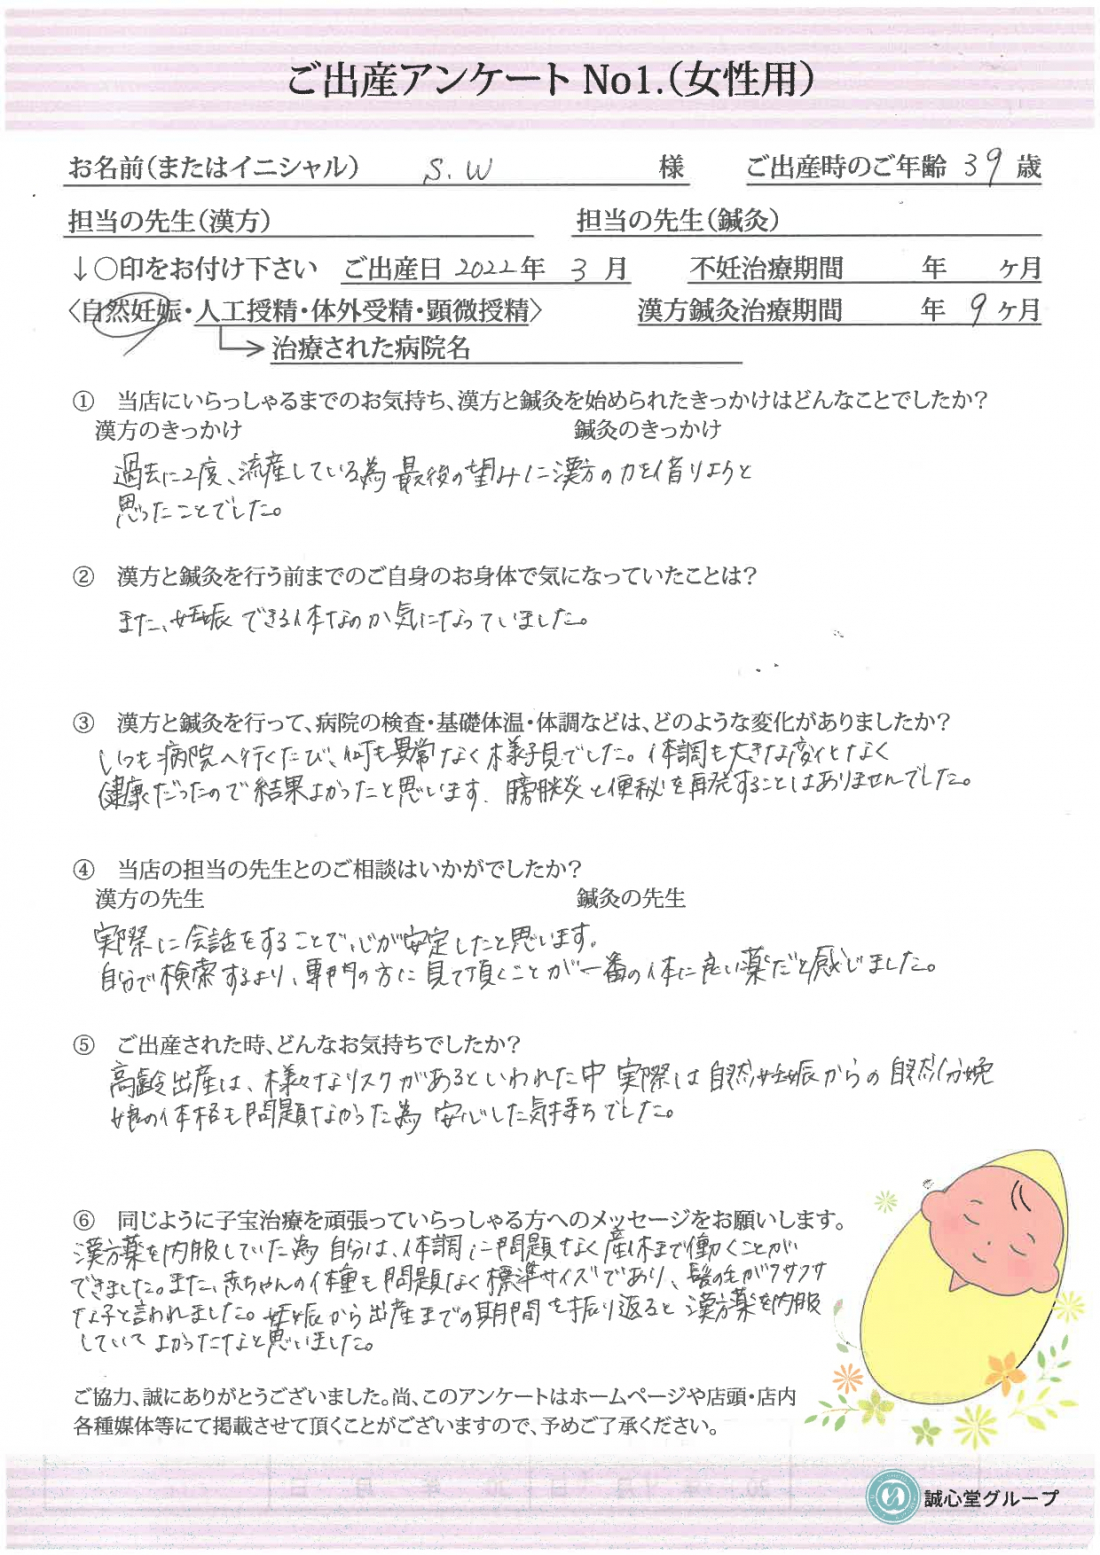 ご出産アンケート No1.（女性用）
お名前（またはイニシャル） S.W 様 ご出産時のご年齢 39 歳
担当の先生（漢方） 担当の先生（鍼灸）
↓〇印をお付け下さい ご出産日 2022年 3 月 不妊治療期間 年 ヶ月
〈自然妊娠・人工授精・体外受精・顕微授精〉 漢方鍼灸治療期間 年 9 ヶ月
治療された病院名
① 当店にいらっしゃるまでのお気持ち、漢方と鍼灸を始められたきっかけはどんなことでしたか？
漢方のきっかけ 鍼灸のきっかけ
過去に2度、流産している為 最後の望みに漢方の力を借りようと
思ったことでした。
② 漢方と鍼灸を行う前までのご自身のお身体で気になっていたことは？
また、妊娠できる体なのか気になっていました。
③ 漢方と鍼灸を行って、病院の検査・基礎体温・体調などは、どのような変化がありましたか？
いつも病院へ行くたび、何も異常なく様子見でした。体調も大きな変化なく
健康だったので結果よかったと思います。膀胱炎と便秘を再発することはありませんでした。
④ 当店の担当の先生とのご相談はいかがでしたか？
漢方の先生 鍼灸の先生
実際に会話をすることで、心が安定したと思います。
自分で検索するより、専門の方に見て頂くことが一番の体に良い薬だと感じました。
⑤ ご出産された時、どんなお気持ちでしたか？
高齢出産は、様々なリスクがあるといわれた中 実際は自然妊娠からの自然分娩
娘の体格も問題なかった為 安心した気持ちでした。
⑥ 同じように子宝治療を頑張っていらっしゃる方へのメッセージをお願いします。
漢方薬を内服していた為 自分は、体調に問題なく産休まで働くことが
できました。また、赤ちゃんの体重も問題なく標準サイズであり、髪の毛がフサフサ
な子と言われました。妊娠から出産までの期間を振り返ると漢方薬を内服
していて よかったなと思いました。
ご協力、誠にありがとうございました。尚、このアンケートはホームページや店頭・店内
各種媒体等にて掲載させて頂くことがございますので、予めご了承ください。
誠心堂グループ